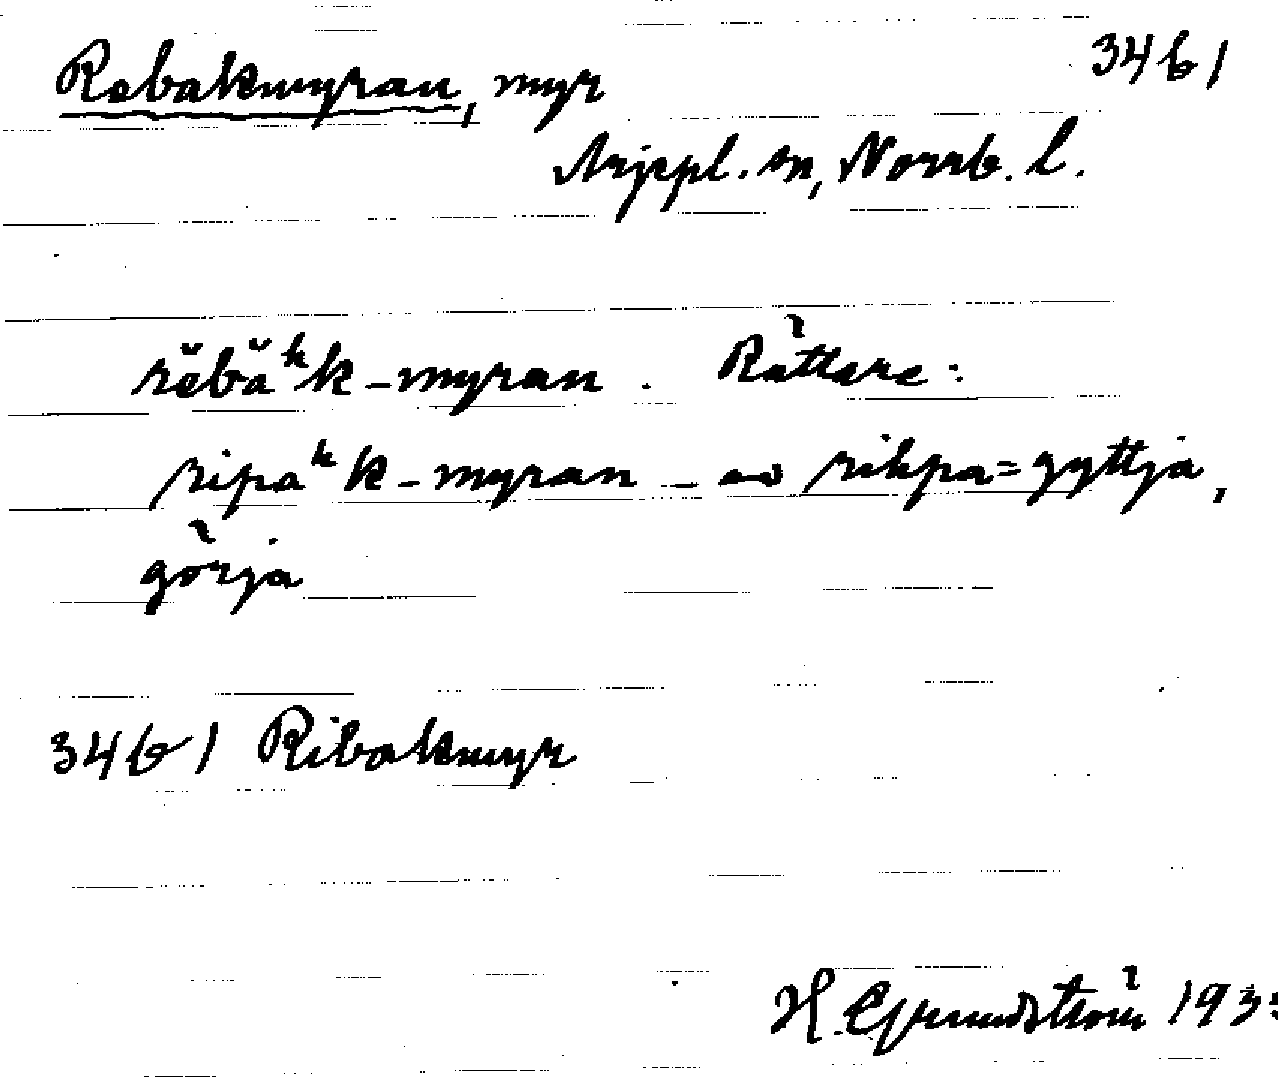 Rebakmyran, myr 3461
Arjepl. sn, Norrb. l.
rĕbăᵏk-myran. Rättare:
ripaᵏk-myran - av rihpa = gyttja,
görja
3461 Ribakmyr
H. Grundström